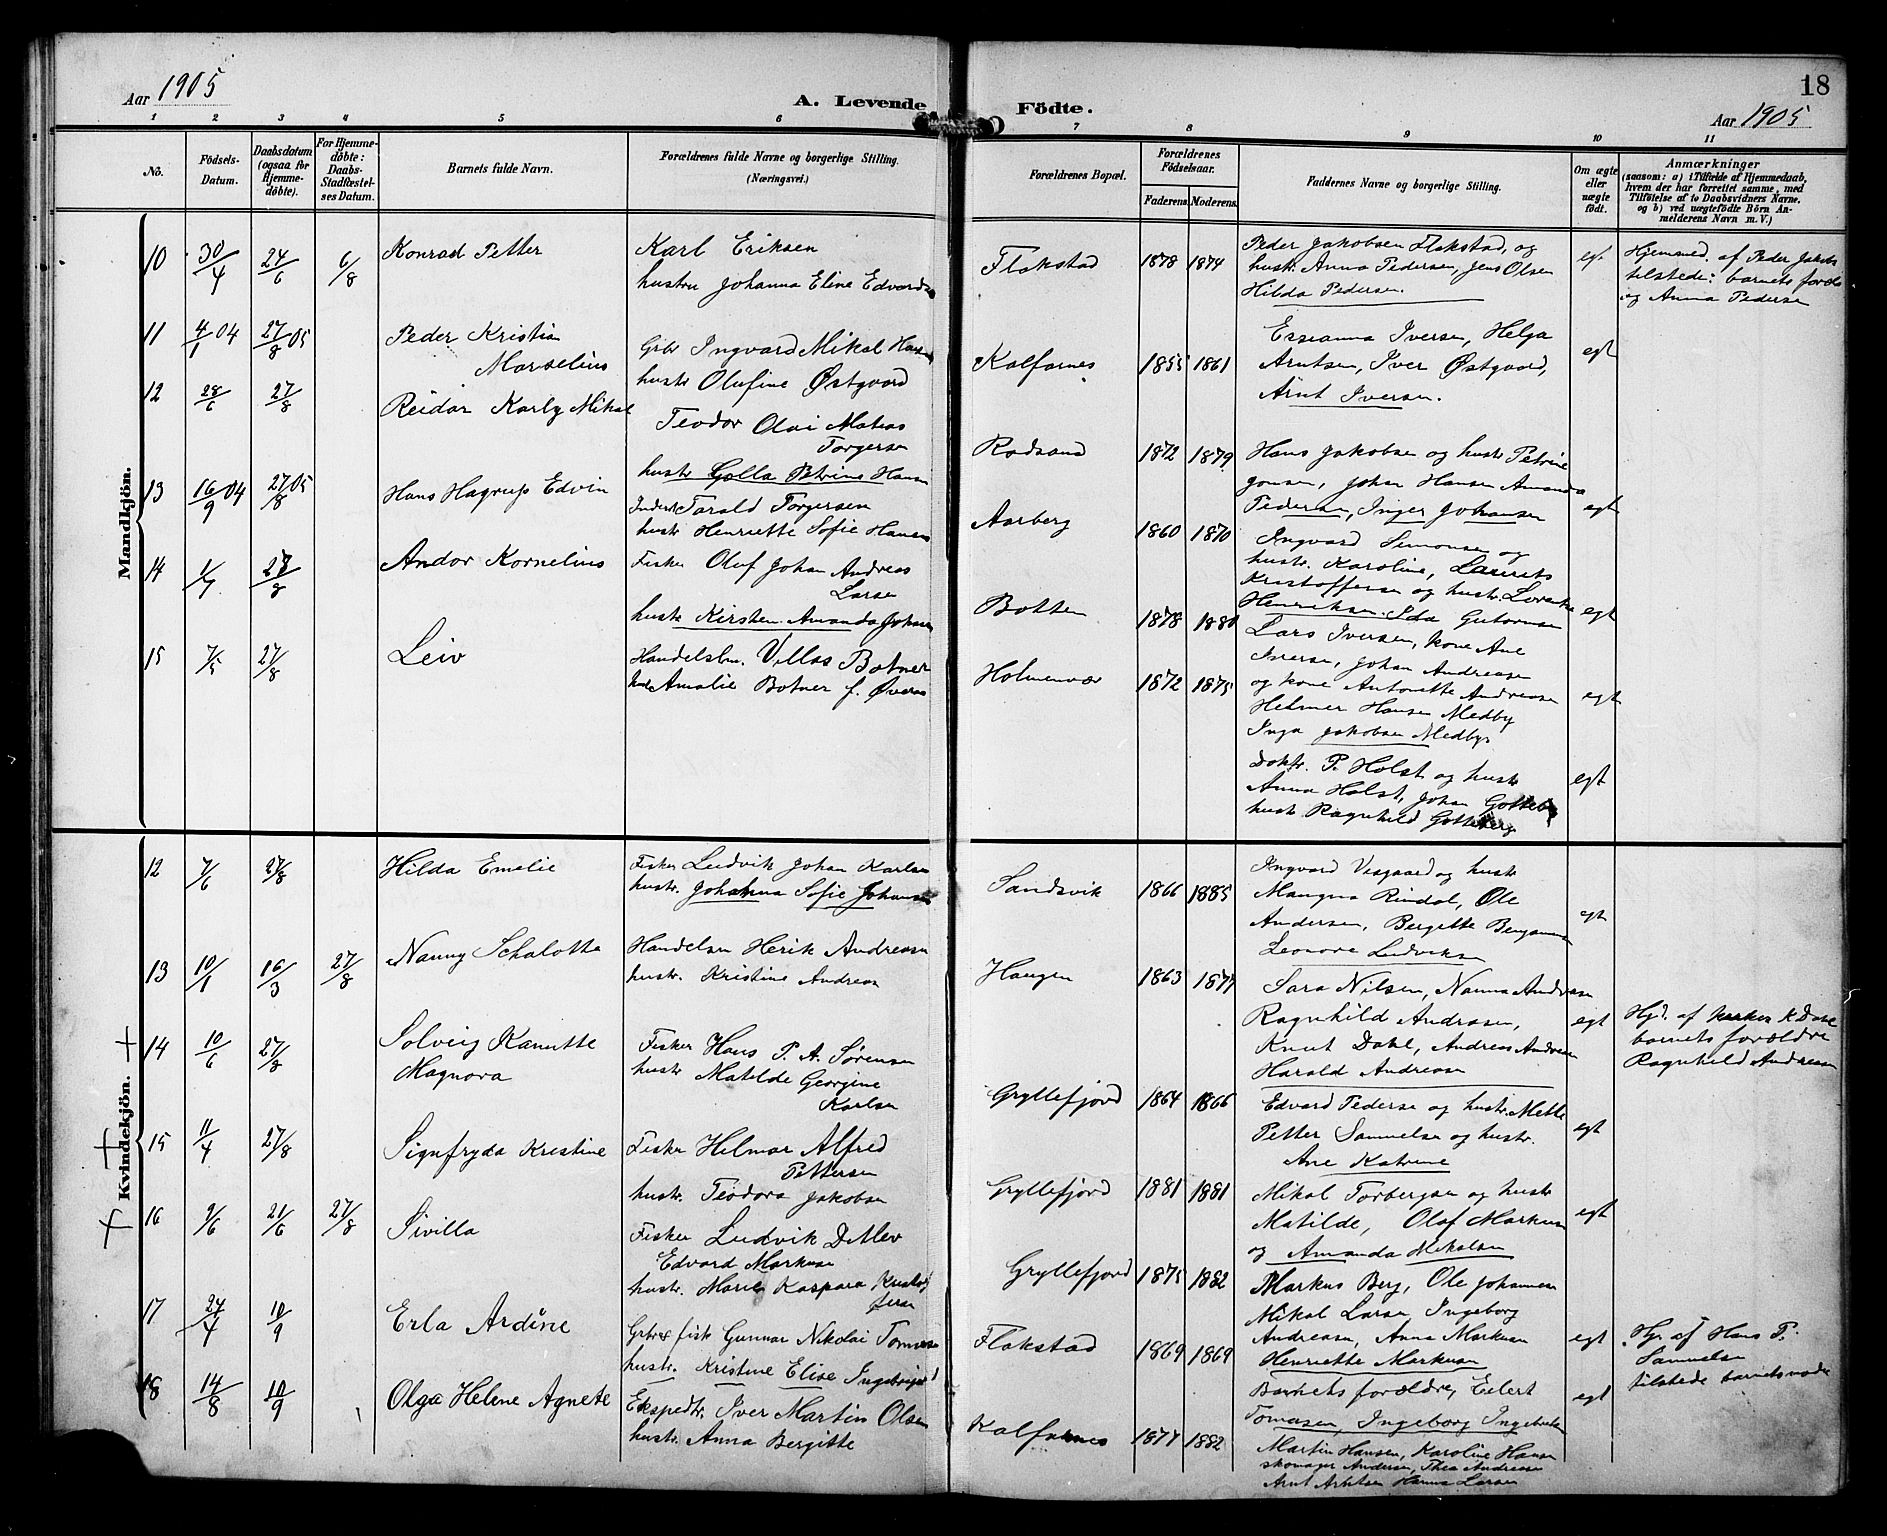 Aar 1905
A. Levende
1 2 3 4 5 6
No.
Födsels-Datum.
Daabsdatum (ogsaa for Hjemme-döbte).
For Hjemme-döbte: Daabs-Stadfæstel-ses Datum.
Barnets fulde Navn.
Forældrenes fulde Navne og borgerlige Stilling.
(Næringsvei.)
Mandkjön.
10 30/4 24/6 6/8 Konrad Petter
Karl Eriksen
hustru Johanna Eline Edvards
11 4/1 04 27/8 05 Peder Kristian
Marselius
Grbr Ingvard Mikal Hansen
hustr Olufine Østgaard
12 28/6 27/8 Reidar Karly Mikal
Teodor Olai Matias
Torgersen
hustr Gjølla Petrine Hansen
13 16/9 04 27/8 05 Hans Hagrup Edvin
Inderst Tarald Torgersen
hustr Henriette Sofie Hansen
14 1/7 27/8 Andor Kornelius
Fisker Oluf Johan Andreas
Larsen
hustr Kirsten Amanda Johnsen
15 7/5 27/8 Leiv
Handelsbm. Villas Botner
hustr Amalie Botner f. Øveraas
Kvindekjön.
12 7/6 27/8 Hilda Emelie
Fisker Ludvik Johan Karlsen
hustr. Johanna Sofie Johansen
13 10/1 16/3 27/8 Nanny Schalotta
Handelsm Herik Andreasen
hustr. Kristine Andreasen
14 10/6 27/8 Solveig Kanutte
Magnora
Fisker Hans P. A. Sørensen
hustr Matilde Georgine
Karlsen
15 11/4 27/8 Signfryda Kristine
Fisker Hilmar Alfred
Pettersen
hustr. Teodora Jakobsen
16 9/6 21/6 27/8 Sivilla
Fisker Ludvik Detlev
Edvard Markusen
hustr. Marie Kaspara Kristof
fersen
17 24/4 10/9 Erla Ardine
Grbr & fisk Gunnar Nikolai Tomassen
hustr. Kristine Elise Ingebrigts
18 14/8 10/9 Olga Helene Agnete
Ekspedtr. Iver Martin Olsen
hustr. Anna Bergitte
18
Födte.
Aar 1905
7 8 9 10 11
Forældrenes Bopæl.
Forældrenes Födselsaar.
Faderens. Moderens.
Faddernes Navne og borgerlige Stilling.
Om ægte eller uægte födt.
Anmærkninger
(saasom: a) i Tilfælde af Hjemmedaab,
hvem der har forrettet samme, med
Tilföielse af to Daabsvidners Navne,
og b) ved uægtefödte Börn An-
melderens Navn m. V.)
Flakstad 1878 1874
Peder Jakobsen Flakstad, og
hustr. Anna Pedersen, Jens Olsen
Hilda Pedersen.
egt
Hjemmed. af Peder Jakobs
tilstede: barnets foræld
og Anna Pedersen
Kalfarnes 1855 1861
Esseanna Iversen, Helga
Arntsen, Iver Østgaard,
Arnt Iversen.
egt
Rødsand 1872 1879
Hans Jakobsen og hustr Petrine
Jonsen, Johan Hansen Amanda
Pedersen, Inger Johansen
egt
Aarberg 1860 1870
Ingvard Simonsen og
hustr. Karoline, Laurits
Kristoffersen og hustr. Lovise
Henriksen. Ida Gutormsen
egt
Botten 1878 1880
Lars Iversen, kone Ane
Iversen, Johan Andreasen
og kone Antonette Andreasen
Helmer Hansen Medby
Inga Jakobsen Medby
egt
Holmenvær 1872 1875
Doktr. P. Holst og hustr
Anna Holst, Johan Gotteberg
hustr. Ragnhild Gotteberg
egt
Sandsvik 1866 1885
Ingvard Vesgaard og hustr
Mangna Rindal, Ole
Andersen, Bergitte Benjamin
Leonora Ludviksen
egt
Haugen 1863 1877
Sara Nilsen, Nanna Andreasen
Ragnhild Andreasen,
Knut Dahl, Andreas Andreasen
Harald Andreasen
egt
Hjd. af kirkes. K Dahl
barnets forældre
Ragnhild Andreasen
Gryllefjord 1864 1866
Edvard Pedersen og hustr. Mette
Petter Samuelsen og hustr.
Ane Katrine
egt
Gryllefjord 1881 1881
Mikal Torbergsen og hustr
Matilde, Olaf Markusen
og Amanda Mikalsen
egt
Gryllefjord 1875 1882
Markus Berg, Ole Johannesen
Mikal Larsen, Ingeborg
Andreasen, Anna Markusen
Henriette Markusen
egt
Flakstad 1869 1869
Barnets forældre, Eilert
Tomasen, Ingeborg Ingebrigtsen
egt
Hjr. af Hans P.
Samuelsen
tilstede barnets moder
Kalfarnes 1877 1882
Martin Hansen, Karoline Hansen
skomager Andersen, Thea Andreasen
Arnt Arntsen Hanna Larsen